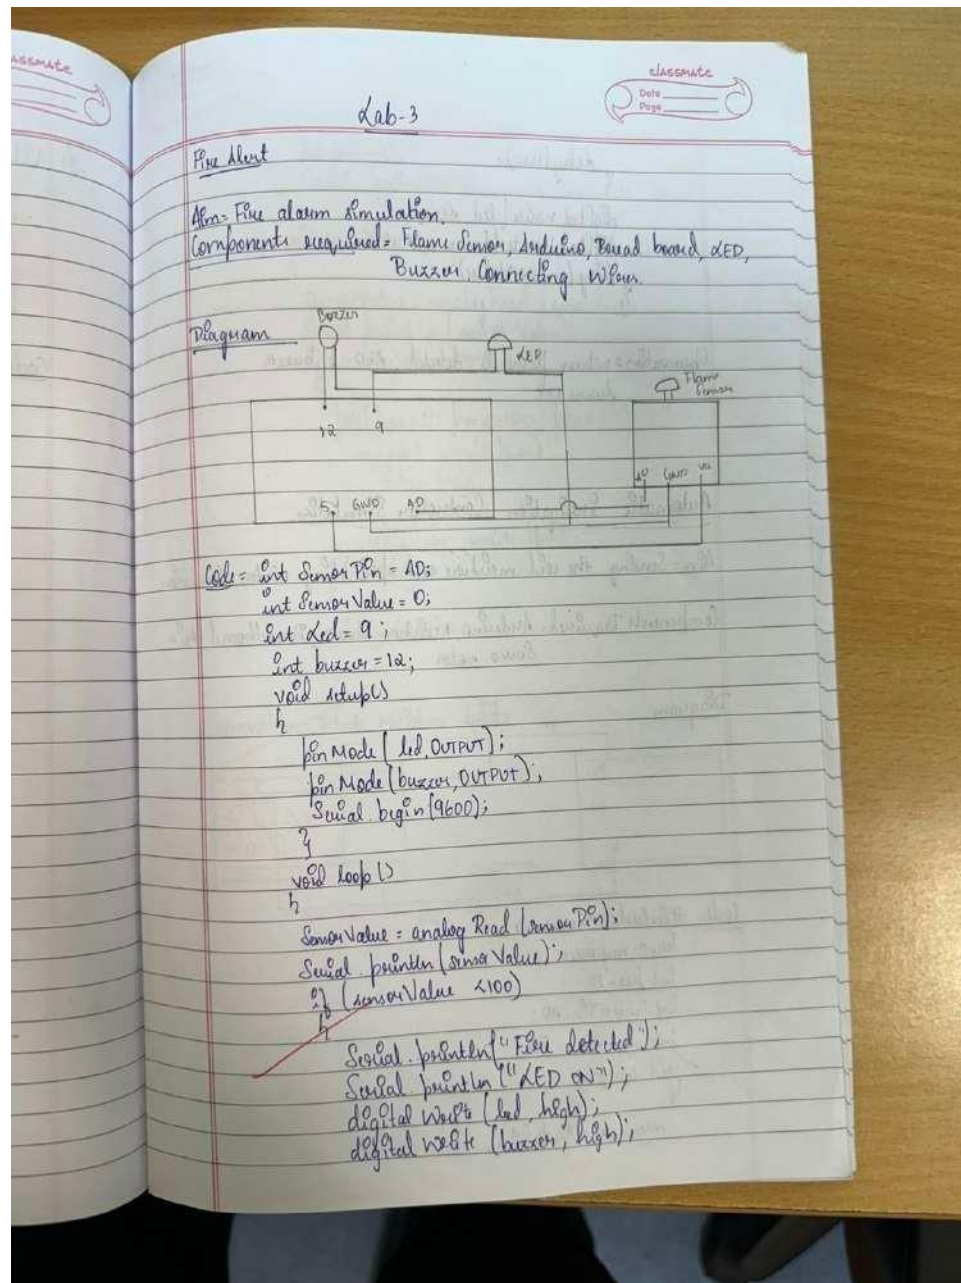 classmate
classmate
Date
Page
Lab-3
Fire Alert
Aim = Fire alarm simulation.
Components required = Flame Sensor, Arduino, Bread board, LED,
Buzzer, Connecting Wires.
Diagram
Buzzer
LED
Flame
Sensor
12 9
A0 GND
5 GND A0
Code = int Sensor Pin = A0;
int Sensor Value = 0;
int Led = 9;
int buzzer = 12;
void setup()
{
pin Mode (led, OUTPUT);
pin Mode (buzzer, OUTPUT);
Serial. begin (9600);
}
void loop ()
{
Sensor Value = analog Read (sensor Pin);
Serial. println (sensor Value);
if (sensor Value <100)
{
Serial. println ("Fire detected");
Serial. println ("LED ON");
digital Write (led, high);
digital write (buzzer, high);